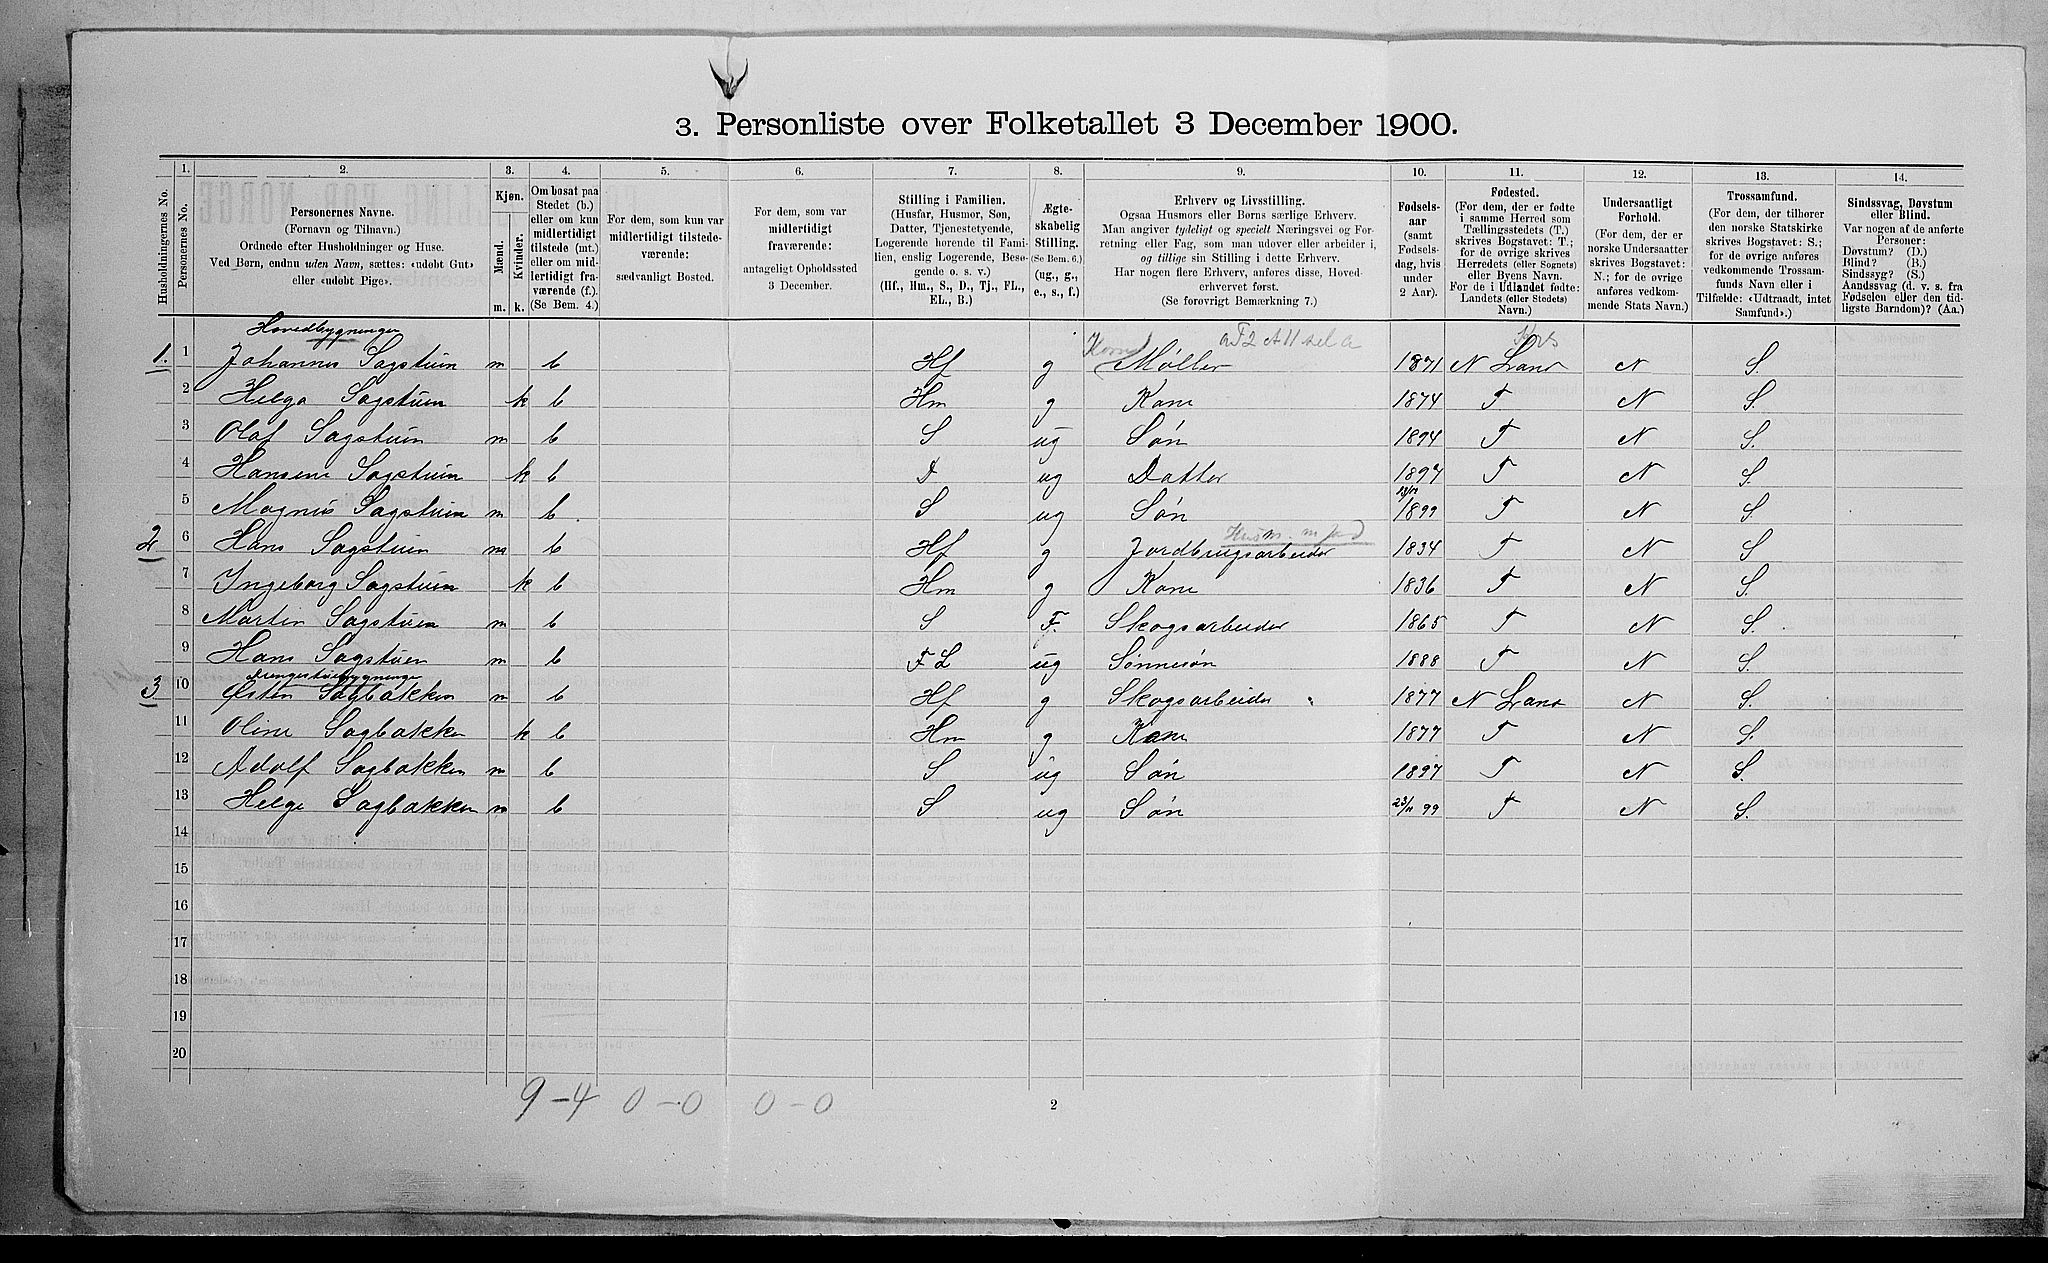 3. Personliste over Folketallet 3 December 1900.
Husholdningernes No.
1.
Personernes No.
2.
Personernes Navne.
(Fornavn og Tilnavn.)
Ordnede efter Husholdninger og Huse.
Ved Børn, endnu uden Navn, sættes: «udøbt Gut»
eller «udøbt Pige».
3.
Kjøn.
Mænd.
Kvinder.
m. k.
4.
Om bosat paa
Stedet (b.)
eller om kun
midlertidigt
tilstede (mt.)
eller om mid-
lertidigt fra-
værende (f.).
(Se Bem. 4.)
5.
For dem, som kun var
midlertidigt tilstede-
værende:
sædvanligt Bosted.
6.
For dem, som var
midlertidigt
fraværende:
antageligt Opholdssted
3 December.
7.
Stilling i Familien.
(Husfar, Husmor, Søn,
Datter, Tjenestetyende,
Logerende hørende til Fami-
lien, enslig Logerende, Besø-
gende o. s. v.)
(Hf., Hm., S., D., Tj., FL.,
EL., B.)
8.
Ægte-
skabelig
Stilling.
(Se Bem. 6.)
(ug., g.,
e., s., f.)
9.
Erhverv og Livsstilling.
Ogsaa Husmors eller Børns særlige Erhverv.
Man angiver tydeligt og specielt Næringsvei og For-
retning eller Fag, som man udøver eller arbeider i,
og tillige sin Stilling i dette Erhverv.
Har nogen flere Erhverv, anføres disse, Hoved-
erhvervet først.
(Se forøvrigt Bemærkning 7.)
10.
Fødsels-
aar
(samt
Fødsels-
dag, hvis
under
2 Aar).
11.
Fødested.
(For dem, der er fødte
i samme Herred som
Tællingsstedets (T.)
skrives Bogstavet: T.;
for de øvrige skrives
Herredets (eller Sognets)
eller Byens Navn.
For de i Udlandet fødte:
Landets (eller Stedets)
Navn.)
12.
Undersaatligt
Forhold.
(For dem, der er
norske Undersaatter
skrives Bogstavet:
N.; for de øvrige
anføres vedkom-
mende Stats Navn.)
13.
Trossamfund.
(For dem, der tilhører
den norske Statskirke
skrives Bogstavet: S.;
for de øvrige anføres
vedkommende Trossam-
funds Navn eller i
Tilfælde: «Udtraadt, intet
Samfund».)
14.
Sindssvag, Døvstum
eller Blind.
Var nogen af de anførte
Personer:
Døvstum? (D.)
Blind? (B.)
Sindssyg? (S.)
Aandssvag (d. v. s. fra
Fødselen eller den tid-
ligste Barndom)? (Aa.)
Hovedbygningen
1. 1 Johannes Sagstuen m b Hf g Møller 1871 N Land N S.
2 Helga Sagstuen k b Hm g Kone 1874 T N S.
3 Olaf Sagstuen m b S ug Søn 1894 T N S.
4 Hansene Sagstuen k b D ug Datter 1897 T N S.
5 Magnus Sagstuen m b S ug Søn 1899 T N S.
Husm. m jord
2 6 Hans Sagstuen m b Hf g Jordbrugsarbeider 1834 T N S
7 Ingeborg Sagstuen k b Hm g Kone 1836 T N S.
8 Martin Sagstuen m b S F. Skogsarbeider 1865 T N S.
9 Hans Sagstuen m b FL ug Sønnesøn 1888 T N S.
3 10 Østen Sagbakken m b Hf g Skogsarbeider 1877 N Land N S.
11 Oline Sagbakken k b Hm g Kone 1877 T N S.
12 Adolf Sagbakken m b S ug Søn 1897 T N S.
13 Helge Sagbakken m b S ug Søn 23/11 99 T N S.
14
15
16
17
18
19
20
9-4 0-0 0-0
2